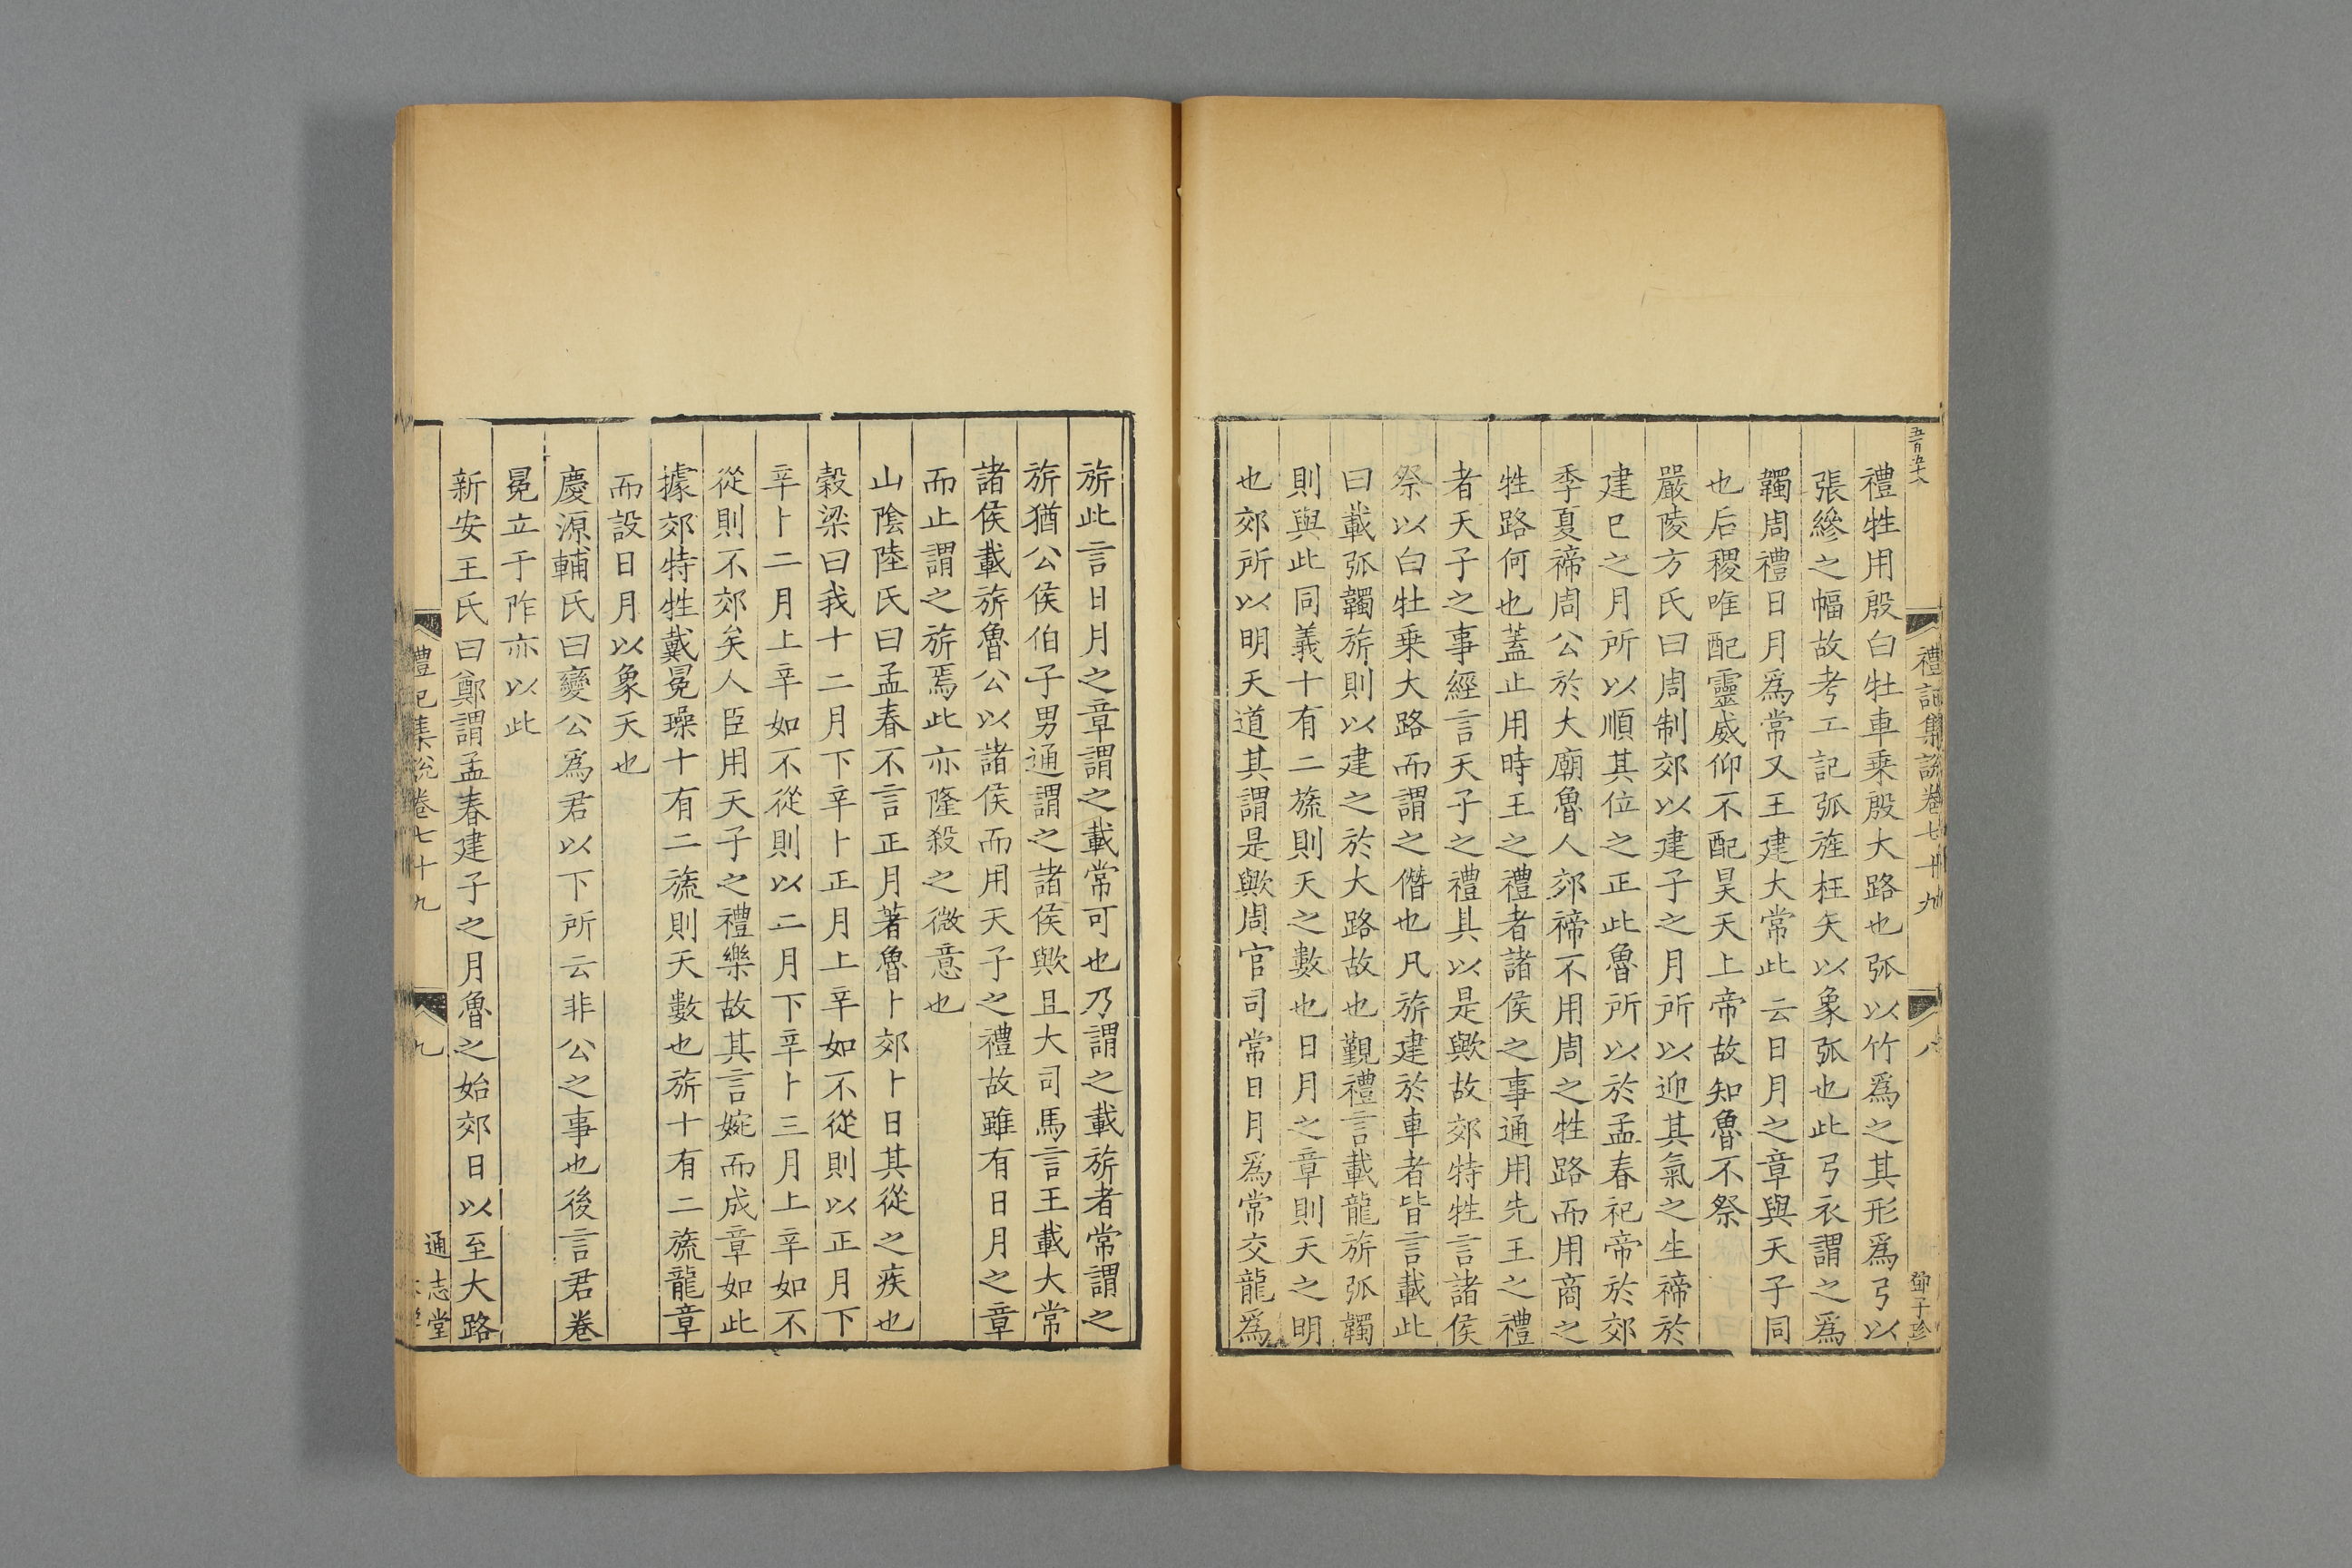 五百五十六
禮記集説卷七十九
八
鄧子珍
禮牲用殷白牡車乗殷大路也弧以竹爲之其形爲弓以
張縿之幅故考工記弧旌枉矢以象弧也此弓衣謂之爲
韣周禮日月爲常又王建大常此云日月之章與天子同
也后稷唯配靈威仰不配昊天上帝故知魯不祭
嚴陵方氏曰周制郊以建子之月所以迎其氣之生禘於
建巳之月所以順其位之正此魯所以於孟春祀帝於郊
季夏禘周公於大廟魯人郊禘不用周之牲路而用商之
牲路何也蓋止用時王之禮者諸侯之事通用先王之禮
者天子之事經言天子之禮具以是歟故郊特牲言諸侯
祭以白牡乗大路而謂之僭也凡旂建於車者皆言載此
曰載弧韣旂則以建之於大路故也覲禮言載龍旂弧韣
則與此同義十有二旒則天之數也日月之章則天之明
也郊所以明天道其謂是歟周官司常日月爲常交龍爲
旂此言日月之章謂之載常可也乃謂之載旂者常謂之
旂猶公侯伯子男通謂之諸侯歟且大司馬言王載大常
諸侯載旂魯公以諸侯而用天子之禮故雖有日月之章
而止謂之旂焉此亦隆殺之微意也
山陰陸氏曰孟春不言正月著魯卜郊卜日其從之疾也
穀梁曰我十二月下辛卜正月上辛如不從則以正月下
辛卜二月上辛如不從則以二月下辛卜三月上辛如不
從則不郊矣人臣用天子之禮樂故其言婉而成章如此
據郊特牲戴冕璪十有二旒則天數也旂十有二旒龍章
而設日月以象天也
慶源輔氏曰變公爲君以下所云非公之事也後言君卷
冕立于阼亦以此
新安王氏曰鄭謂孟春建子之月魯之始郊日以至大路
禮記集説卷七十九
九
通志堂